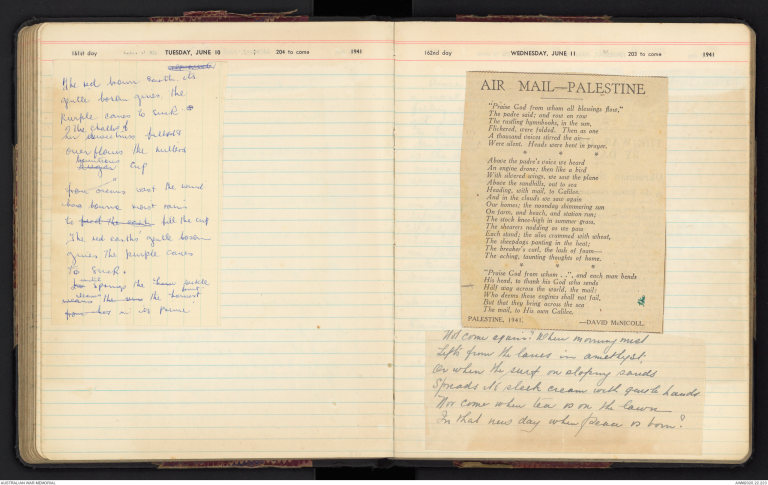 161st day TUESDAY, JUNE 10 204 to come 1941
The red brown Earth its
gentle bosom gives the
purple canes to suck
overflows the
Cup
from oceans vast the wind
has bourne most rain
to feed the earth fill the cup
The red earths gentle bosom
gives the purple canes
to suck.
springs the sickle
the harvest
in its
162nd day WEDNESDAY, JUNE 11 203 to come 1941
AIR MAIL—PALESTINE
"Praise God from whom all blessings flow,"
The padre said; and row on row
The rustling hymnbooks, in the sun,
Flickered, were folded. Then as one
A thousand voices stirred the air—
Were silent. Heads were bent in prayer.
* * *
Above the padre's voice we heard
An engine drone; then like a bird
With silvered wings, we saw the plane
Above the sandhills, out to sea
Heading, with mail, to Galilee.
And in the clouds we saw again
Our homes; the noonday shimmering sun
On farm, and beach, and station run;
The stock knee-high in summer grass,
The shearers nodding as we pass
Each stand; the silos crammed with wheat,
The sheepdogs panting in the heat;
The breaker's curl, the lash of foam—
The aching, taunting thoughts of home.
* * *
"Praise God from whom . .", and each man bends
His head, to thank his God who sends
Half way across the world, the mail;
Who deems those engines shall not fail,
But that they bring across the sea
The mail, to His own Galilee.
PALESTINE, 1941. —DAVID McNICOLL.
Not come again? When morning mist
Lifts from the lanes in amethyst;
Or when the surf on sloping sands
Spreads its sleek cream with gentle hands
Nor come when tea is on the lawn
In that new day when Peace is born?
AUSTRALIAN WAR MEMORIAL